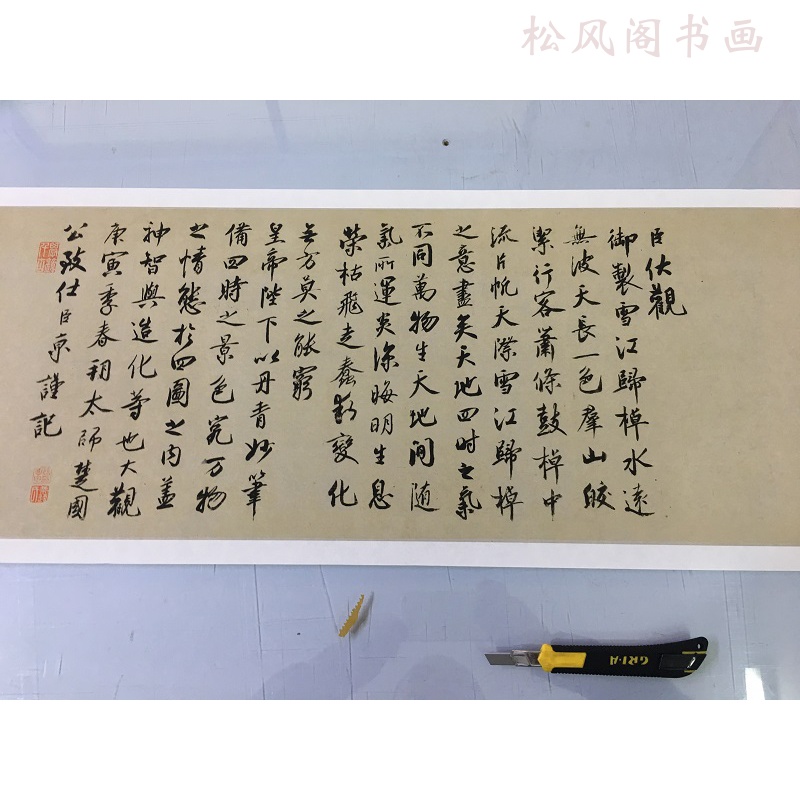 松风阁书画
臣伏觀
御製雪江歸棹水遠
無波天長一色羣山皎
潔行客蕭條鼓棹中
流片帆天際雪江歸棹
之意盡矣天地四時之氣
不同萬物生天地間隨
氣所運炎涼晦明生息
榮枯飛走蠢動變化
無方莫之能窮
皇帝陛下以丹青妙筆
備四時之景色究万物
之情態於四圖之内蓋
神智與造化等也大觀
庚寅季春朔太師楚國
公致仕臣京謹記
GRI-A